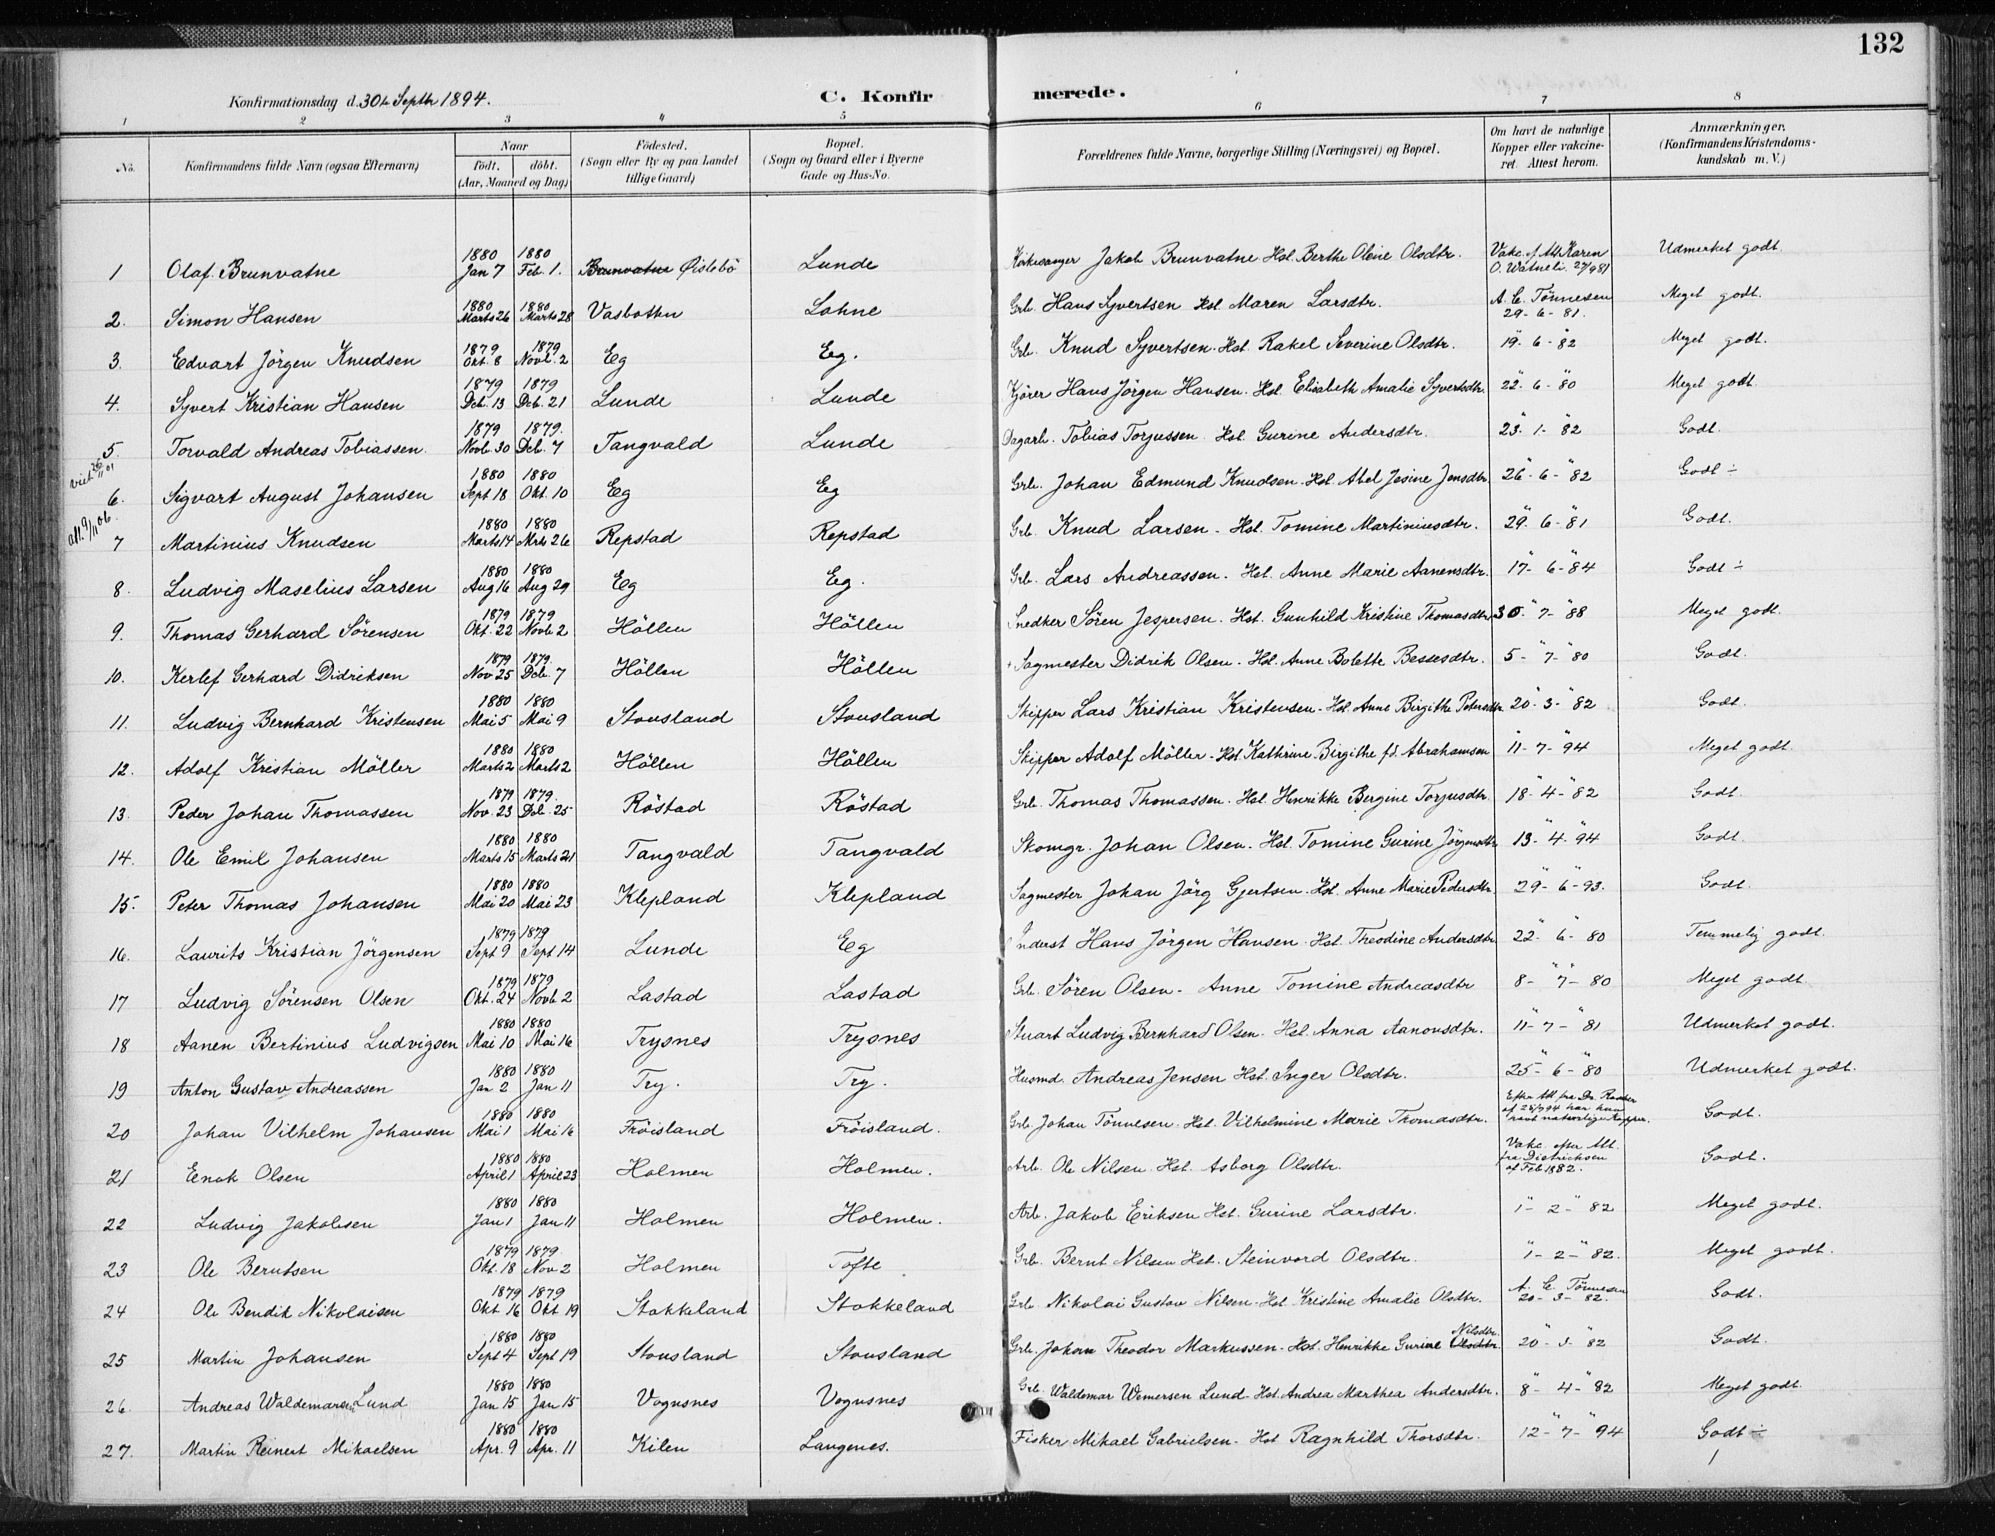 132
Konfirmationsdag d. 30te Septbr 1894. C. Konfirmerede.
1 2 3 4 5 6 7 8
No. Konfirmandens fulde Navn (ogsaa Efternavn) Naar født, døbt. (Aar, Maaned og Dag) Fødested. (Sogn eller By og paa Landet tillige Gaard) Bopæl. (Sogn og Gaard eller i Byerne Gade og Hus-No. Forældrenes fulde Navne, borgerlige Stilling (Næringsvei) og Bopæl. Om havt de naturlige Kopper eller vakcineret. Attest herom. Anmærkninger. (Konfirmandens Kristendomskundskab m. V.)
1 Olaf Brunvatne 1880 Jan 7 1880 Feb. 1. Brunvatne Øislebö Lunde Kirkesanger Jakob Brunvatne Hst. Berthe Oline Olsdtr. Vakc. f. Att Karen O. Watneli 27/9 81 Udmerket godt.
2. Simon Hansen 1880 Marts 26 1880 Marts 28 Vasbotten Lohne Grb. Hans Syvertsen Hst. Maren Larsdtr. A. C. Tönnesen 29-6-81. Meget godt.
3. Edvart Jörgen Knudsen 1879 Okt. 8 1879 Novb. 2 Eg Eg. Grb. Knud Syvertsen. Hst. Rakel Severine Olsdtr. 19"-6-"82 Meget godt.
4. Syvert Kristian Hansen 1879 Deb. 13 1879 Deb. 21 Lunde Lunde Kjörer Hans Jörgen Hansen. Hst. Elisabeth Amalie Syvertsdtr. 22"-6-"80 Meget godt
5. Torvald Andreas Tobiassen. 1879 Novb. 30 1879. Deb. 7 Tangvald Lunde Dagarb. Tobias Torjussen. Hst. Gurine Andersdtr. 23"-1-"82 Godt.
6. Sigvart August Johansen 1880 Sept 18 1880 Okt. 10 Eg Eg Grb. Johan Edmund Knudsen. Hst. Abel Jesine Jensdtr 26"-6-"82 Godt ÷
att. 9/11 06.
7 Martinius Knudsen 1880 Marts 14 1880 Mrts 26 Repstad Repstad Grb. Knud Larsen - Hst. Tomine Martiniusdtr. 29"-6-"81 Godt.
8. Ludvig Maselius Larsen 1880 Aug 16 1880 Aug 29 Eg Eg. Grb. Lars Andreassen. Hst. Anne Marie Aanensdtr. 17"-6-"84 Godt ÷
9. Thomas Gerhard Sörensen 1879 Okt. 22 1879 Novb. 2 Höllen Höllen Snedker Sören Jespersen. Hst. Gunhild Kristine Thomasdtr. 30"-7-"88 Meget godt.
10. Kerlef Gerhard Didriksen 1879 Nov 25 1879. Deb. 7 Höllen Höllen Sagmester Didrik Olsen - Hst. Anne Bolette Bessesdtr. 5-"7-"80 Godt.
11. Ludvig Bernhard Kristensen 1880 Mai 5 1880 Mai 9 Stousland Stousland Skipper Lars Kristian Kristensen - Hst. Anne Birgithe Petersdtr 20"-3-"82 Godt.
12. Adolf Kristian Möller 1880 Marts 2 1880 Marts 2 Höllen Höllen Skipper Adolf Möller - Hst. Kathrine Birgithe fd. Abrahamsen 11"-7-"94 Meget godt.
13. Peder Johan Thomassen 1879 Nov. 23 1879. Deb. 25 Röstad Röstad Grb. Thomas Thomassen. Hst. Henrikke Bergine Torjusdtr. 18"-4-"82 Godt.
14. Ole Emil Johansen 1880 Marts 15 1880 Marts 21 Tangvald Tangvald Skomgr. Johan Olsen. Hst. Tomine Gurine Jörgensdtr 13"-4-"94 Godt.
15. Peter Thomas Johansen 1880 Mai 20 1880 Mai 23 Klepland Klepland Sagmester Johan Jörg Gjertsen. Hst. Anne Marie Pedersdtr. 29"-6-"93. Godt.
16. Laurits Kristian Jörgensen 1879 Sept 9 1879 Sept 14 Lunde Eg Inderst Hans Jörgen Hansen. Hst. Theodine Andersdtr. 22"-6-"80 Temmelig godt.
17 Ludvig Sörensen Olsen 1879 Okt. 24 1879 Novb. 2 Lastad Lastad Grb. Sören Olsen - Anne Tomine Andreasdtr 8-"7-"80 Meget godt.
18 Aanen Bertinius Ludvigsen 1880 Mai 10 1880 Mai 16 Trysnes Trysnes Stuart Ludvig Bernhard Olsen. Hst. Anna Aanonsdtr. 11"-7-"81 Udmerket godt.
19 Anton Gustav Andreassen 1880 Jan 2 1880 Jan 11 Try. Try. Husmd. Andreas Jensen Hst. Inger Olsdtr. 25"-6-"80 Udmerket godt.
20 Johan Vilhelm Johansen 1880 Mai 1 1880 Mai 16 Fröisland Fröisland. Grb. Johan Tönnesen. Hst. Vilhelmine Marie Thomasdtr. Efter Att fra Dr. har han havt naturlige Kopper. Godt.
21 Enok Olsen 1880 April 1 1880 April 23 Holmen Holmen. Arb. Ole Nilsen. Hst. Asborg Olsdtr. Vakc. efter Att. fra Dietrichsen af Feb 1882. Godt.
22 Ludvig Jakobsen 1880 Jan 1 1880 Jan 11 Holmen Holmen. Arb. Jakob Eriksen Hst. Gurine Larsdtr. 1"-2-"82 Meget godt.
23 Ole Berntsen 1879 Okt. 18 1879. Nov 2 Holmen Tofte Grb. Bernt Nilsen Hst. Steinvord Olsdtr. "1-2-"82. Meget godt.
24 Ole Bendik Nikolaisen 1879 Okt 16 1879 Okt 19 Stokkeland Stokkeland Grb. Nikolai Gustav Nilsen - Hst. Kristine Amalie Olsdtr. A. C. Tönnesen 20-3-82. Godt.
25 Martin Johansen 1880 Sept 4 1880 Sept 19 Stousland Stousland Grb. Johan Theodor Markussen - Hst. Henrikke Gurine Olsdtr. Nilsdtr. 20"-3-"82 Godt.
26 Andreas Waldemarsen Lund 1880 Jan 15 1880 Jan 15 Vognsnes Vognsnes Grb. Waldemar Wernersen Lund. Hst. Andrea Marthea Andersdtr. 8"-4-"82 Meget godt.
27. Martin Reinert Mikaelsen 1880 Apr. 9 1880 Apr. 11 Kilen Langenes. Fisker Mikael Gabrielsen - Hst Ragnhild Thorsdtr. 12"-7-"94 Godt ÷